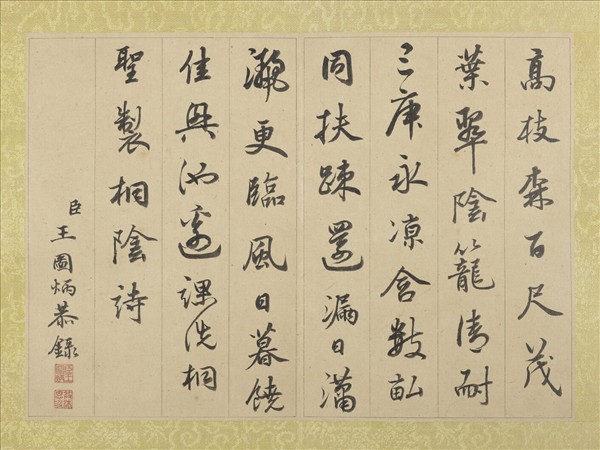 高枝森百尺茂
葉翠陰籠清耐
三庚永凉含數畝
同扶疎還漏日瀟
灑更臨風日暮饒
佳興池邊課洗桐
聖製桐陰詩
臣王圖炳恭錄